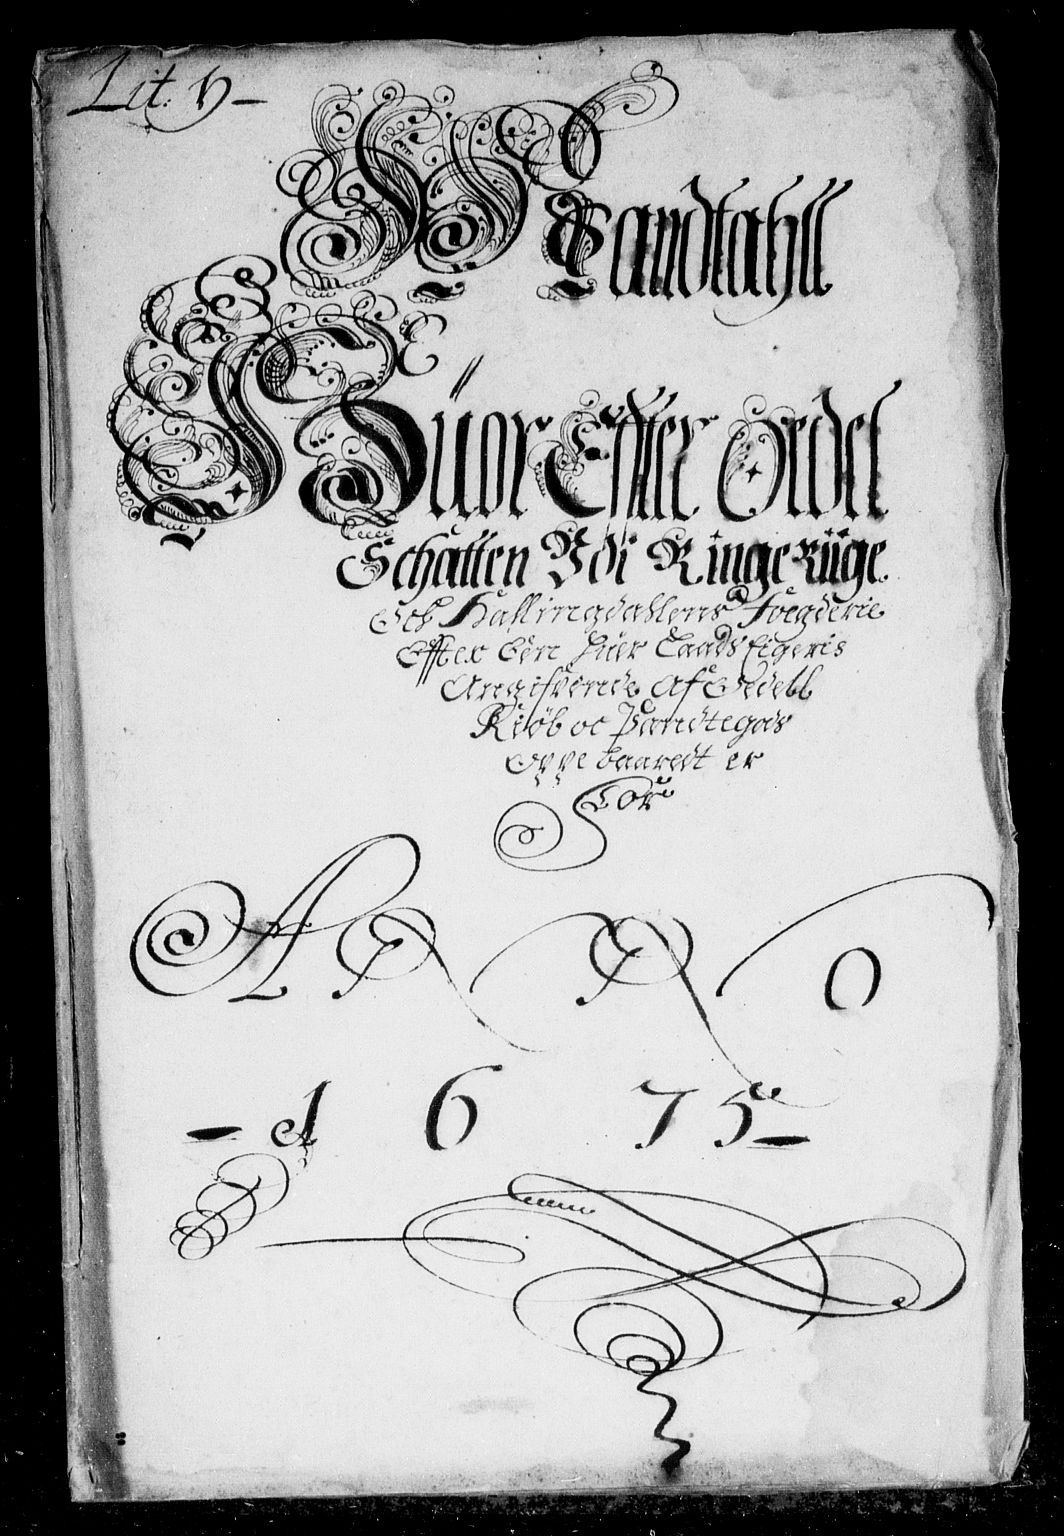 Lit. D
Mandtahll
Huor Effter Oedel
Schatten Vdi Ringe Riige
Och Hallingdahlens Foegderie
Effter Een huer Laads Eigeris
Angifvende af Oedell
Kiøb oc Pandtegods
Oppebaaredt er
For
ANNO
1675